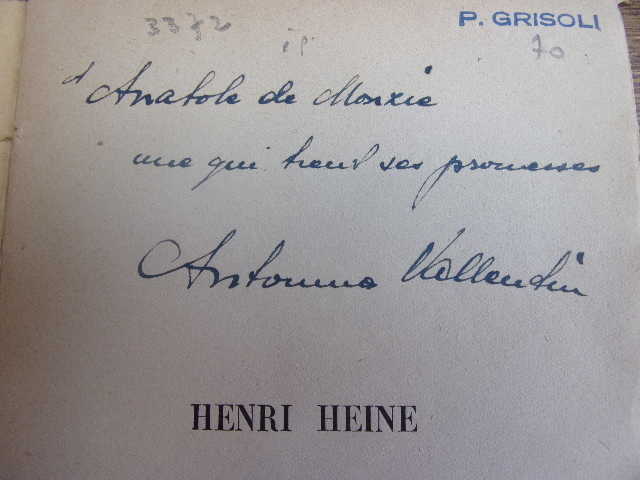 3372
P. GRISOLI
70
à Anatole de Monzie
une qui tient ses promesses
Antonina Vallentin
HENRI HEINE